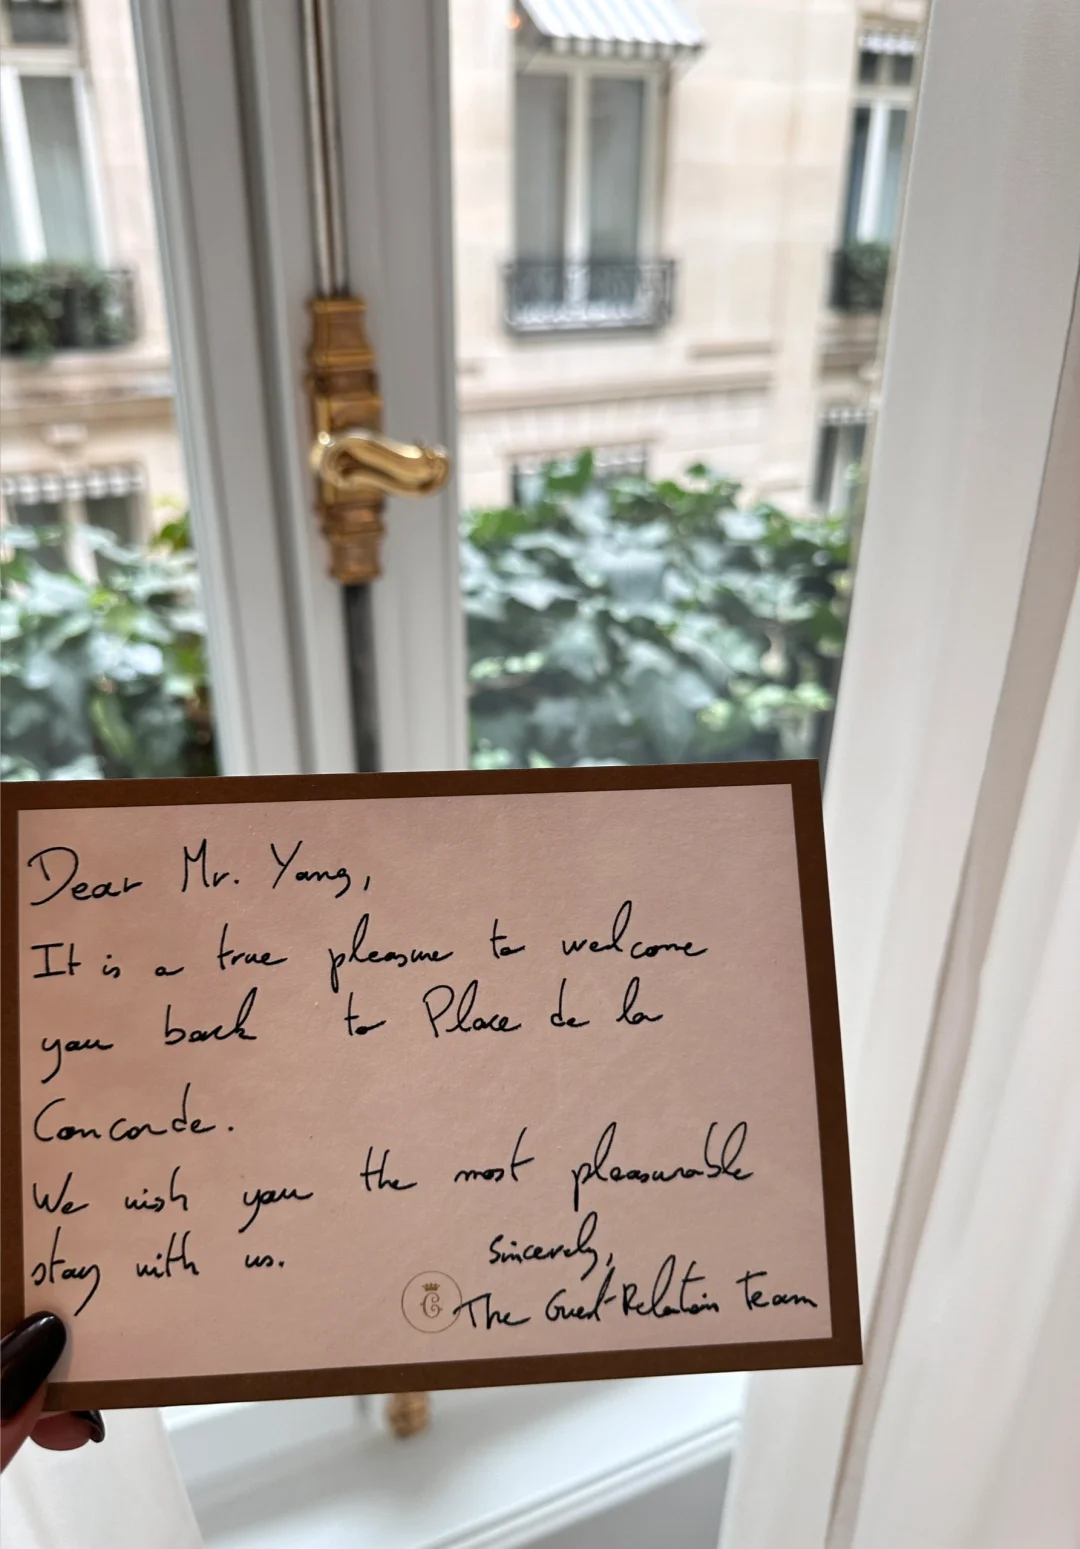 Dear Mr. Yang,
It is a true pleasure to welcome
you back to Place de la
Concorde.
We wish you the most pleasurable
stay with us.
Sincerely,
C
The Guest Relation Team